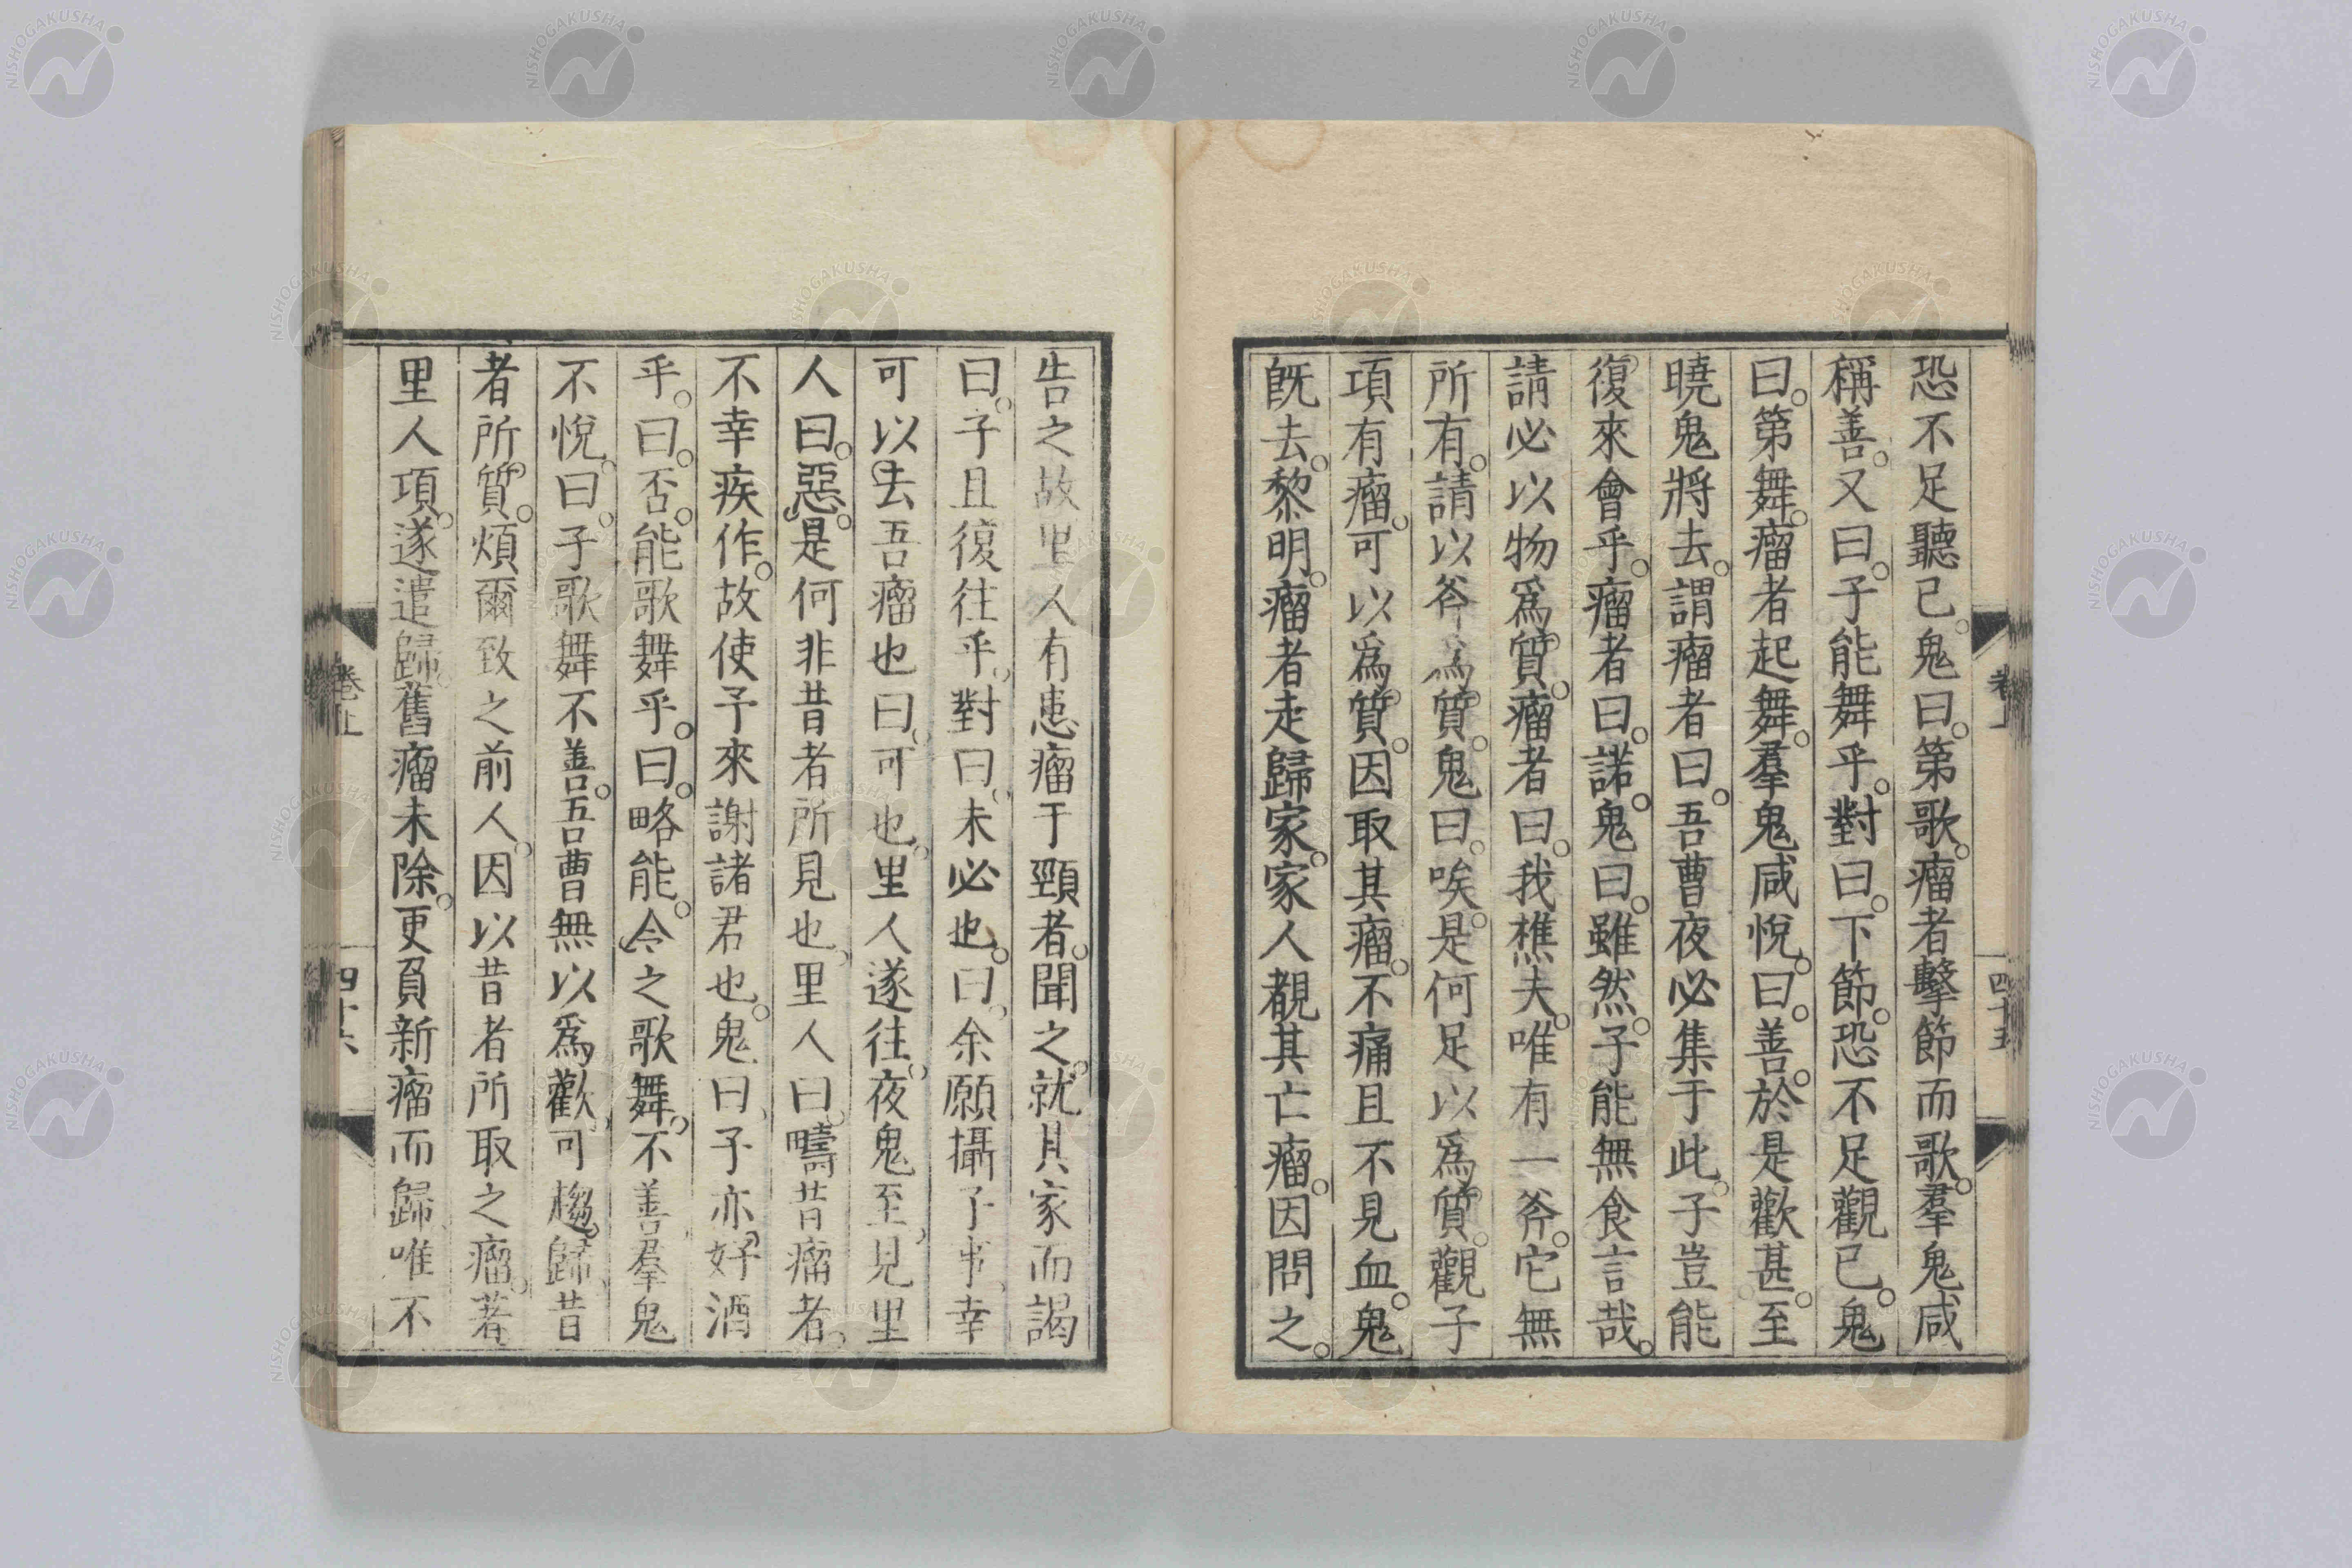 恐不足聽已。鬼曰。第歌。瘤者擊節而歌。羣鬼咸
稱善。又曰。子能舞乎。對曰。下節。恐不足觀已。鬼
曰。第舞。瘤者起舞。羣鬼咸悅。曰。善。於是歡甚。至
曉鬼將去。謂瘤者曰。吾曹夜必集于此。子豈能
復來會乎。瘤者曰。諾。鬼曰。雖然。子能無食言哉。
請必以物爲質。瘤者曰。我樵夫。唯有一斧。它無
所有。請以斧爲質。鬼曰。唉。是何足以爲質。觀子
項有瘤。可以爲質。因取其瘤。不痛且不見血。鬼
旣去。黎明。瘤者走歸家。家人覩其亡瘤。因問之。
卷上
四十五
告之故里人有患瘤于頸者。聞之。就其家而謁
曰。子且復往乎。對曰。未必也。曰。余願攝子事。幸
可以去吾瘤也曰。可也。里人遂往。夜鬼至。見里
人曰。惡。是何非昔者所見也。里人曰。疇昔瘤者。
不幸疾作。故使予來謝諸君也。鬼曰。予亦好酒
乎。曰。否。能歌舞乎。曰。略能。令之歌舞。不善。羣鬼
不悅。曰。子歌舞不善。吾曹無以爲歡。可趨歸。昔
者所質。煩爾致之前人。因以昔者所取之瘤。著
里人項。遂遣歸。舊瘤未除。更負新瘤而歸。唯不
卷上
四十六
NISHOGAKUSHA